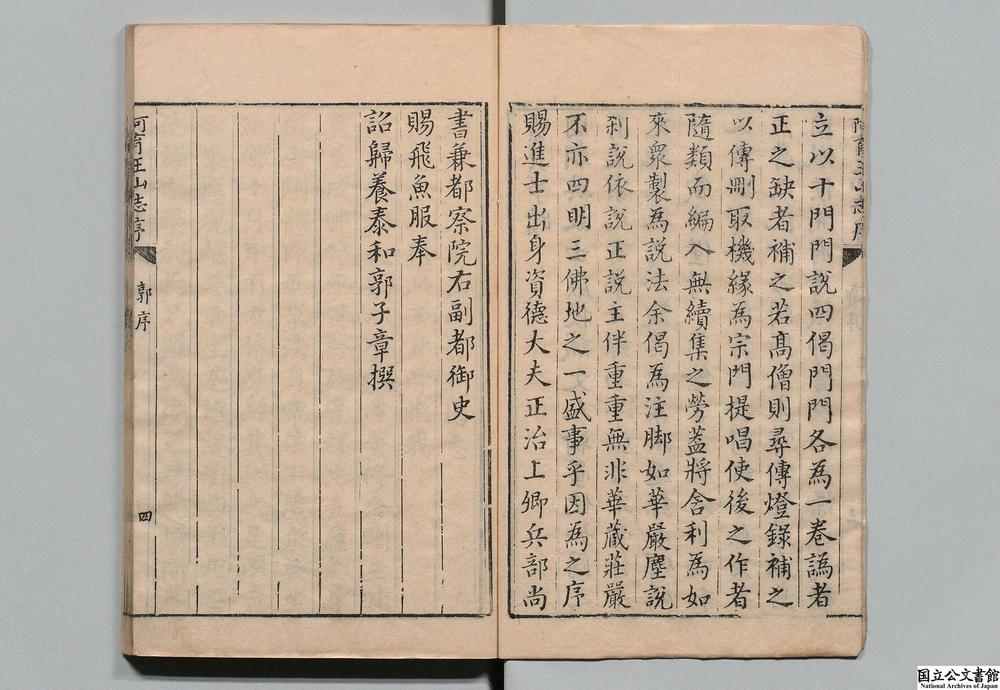 阿育王山志序
立以十門門說四偈門門各為一卷譌者
正之缺者補之若高僧則尋傳燈錄補之
以傳刪取機緣為宗門提唱使後之作者
隨類而編入無續集之勞蓋將舍利為如
來眾製為說法余偈為注脚如華嚴塵說
刹說依說正說主伴重重無非華藏莊嚴
不亦四明三佛地之一盛事乎因為之序
賜進士出身資德大夫正治上卿兵部尚
書兼都察院右副都御史
賜飛魚服奉
詔歸養泰和郭子章撰
阿育王山志序
郭序
四
国立公文書館
National Archives of Japan